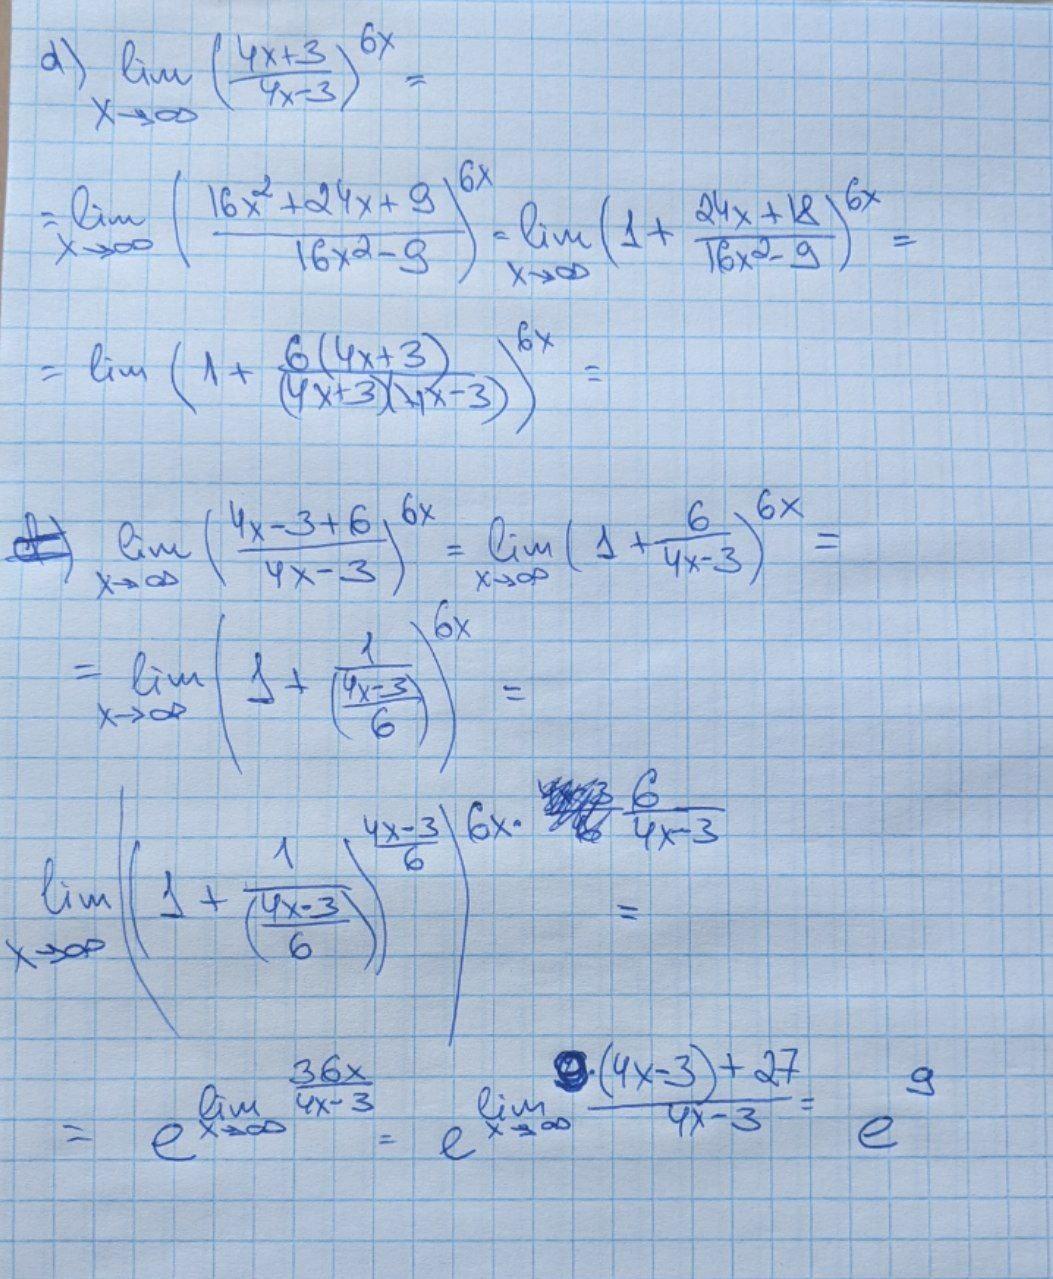 d) lim x→∞ ((4x+3)/(4x-3))^6x =
= lim x→∞ ((16x²+24x+9)/(16x²-9))^6x = lim x→∞ (1 + (24x+18)/(16x²-9))^6x =
= lim (1 + 6(4x+3)/((4x+3)(4x-3)))^6x =
lim x→∞ ((4x-3+6)/(4x-3))^6x = lim x→∞ (1 + 6/(4x-3))^6x =
= lim x→∞ (1 + 1/((4x-3)/6))^6x =
lim x→∞ ((1 + 1/((4x-3)/6))^((4x-3)/6))^(6x · 6/(4x-3)) =
= e^(lim x→∞ 36x/(4x-3)) = e^(lim x→∞ (9·(4x-3)+27)/(4x-3)) = e^9